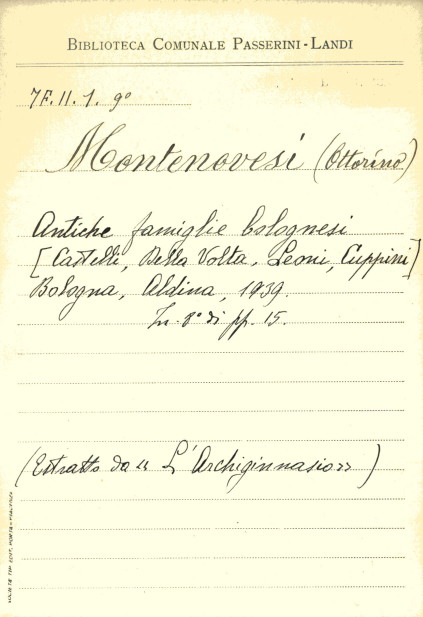 BIBLIOTECA COMUNALE PASSERINI-LANDI
7F.II.1.9º
Montenovesi (Ottorino)
Antiche famiglie bolognesi
[Castelli, Della Volta, Leoni, Cuppini]
Bologna, Aldina, 1939.
In-8º di pp. 15.
(Estratto da « L'Archiginnasio»)